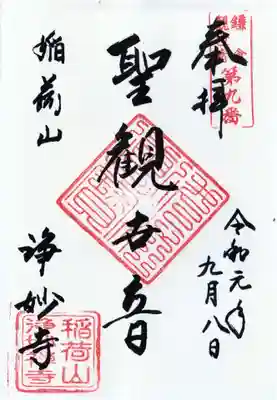 奉拝
鎌倉
観音
第九番
聖観世音
稲荷山
浄妙寺
令和元年
九月八日
稲荷山
浄妙寺